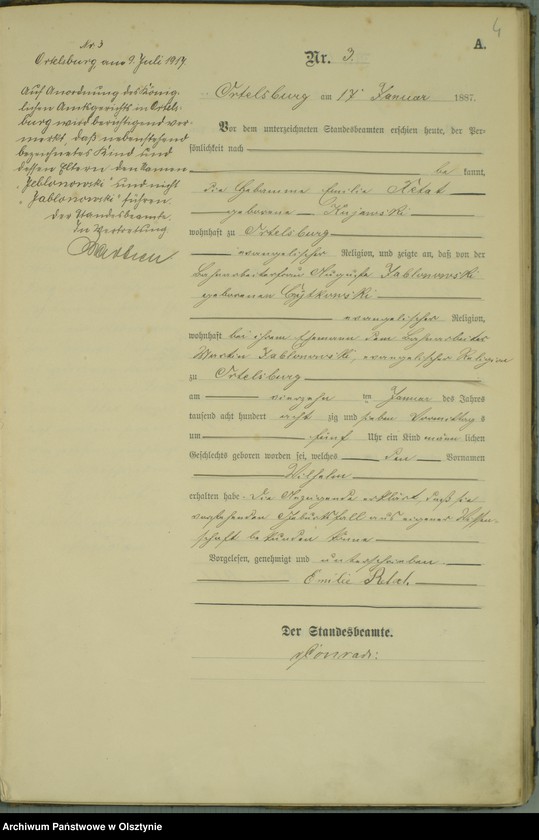 4
A.
Nr. 3
Ortelsburg am 9. Juli 1917.
Auf Anordnung des König-
lichen Amtsgerichts in Ortels-
burg wird berichtigend ver-
merkt, daß nebenstehend
bezeichnetes Kind und
dessen Eltern den Namen
"Jeblonowski" und nicht
"Jablonowski" führen.
Der Standesbeamte.
In Vertretung
Nr. 3.
Ortelsburg am 17 Januar 1887.
Vor dem unterzeichneten Standesbeamten erschien heute, der Per-
sönlichkeit nach
be kannt,
die Hebamme Emilie Retat
geborene Kujawski
wohnhaft zu Ortelsburg
evangelischer Religion, und zeigte an, daß von der
Bahnarbeiterfrau Auguste Jablonowski
geborenen
evangelischer Religion,
wohnhaft bei ihrem Ehemann dem Bahnarbeiter
Martin Jablonowski, evangelischer Religion
zu Ortelsburg
am vierzehn ten Januar des Jahres
tausend acht hundert acht zig und sieben Vormittags
um fünf Uhr ein Kind männ lichen
Geschlechts geboren worden sei, welches den Vornamen
Wilhelm
erhalten habe. Die Anzeigende erklärt, daß sie
vorstehenden Geburtsfall aus eigener Wissen-
schaft bekunden könne
Vorgelesen, genehmigt und unterschrieben.
Emilie Retat.
Der Standesbeamte.
Conradi.
Archiwum Państwowe w Olsztynie